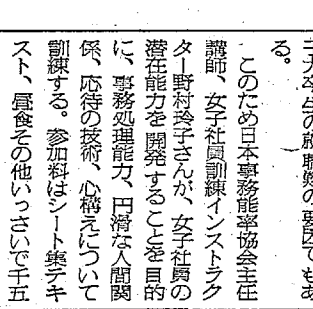 子大卒生の就職難の要因でもあ
る。
このため日本事務能率協会主任
講師、女子社員訓練インストラク
ター野村玲子さんが、女子社員の
潜在能力を開発することを目的
に、事務処理能力、円滑な人間関
係、応待の技術、心構えについて
訓練する。参加料はシート集テキ
スト、昼食その他いっさいで千五